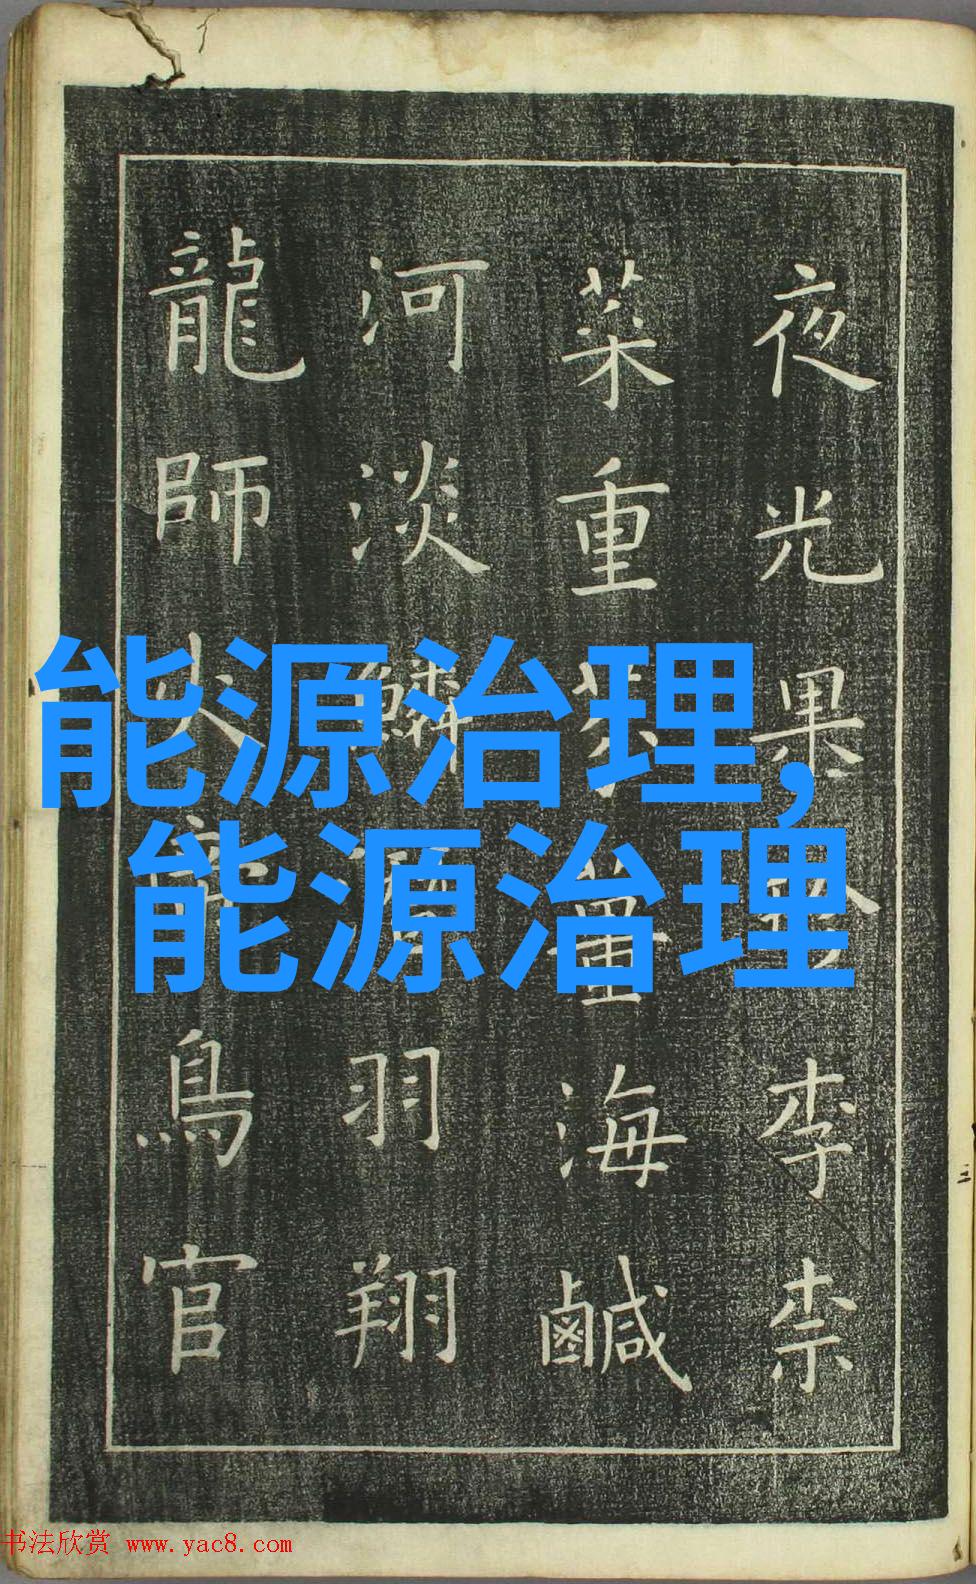 夜光果李柰
菜重芥薑海鹹
河淡鱗羽翔
龍師火鳥官
能源治理,
能源治理
书法欣赏 www.yac8.com